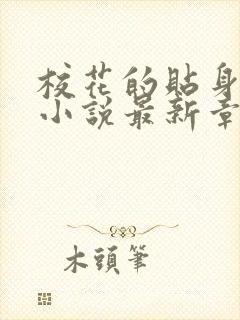 校花的貼身
小說最新章
木頭筆